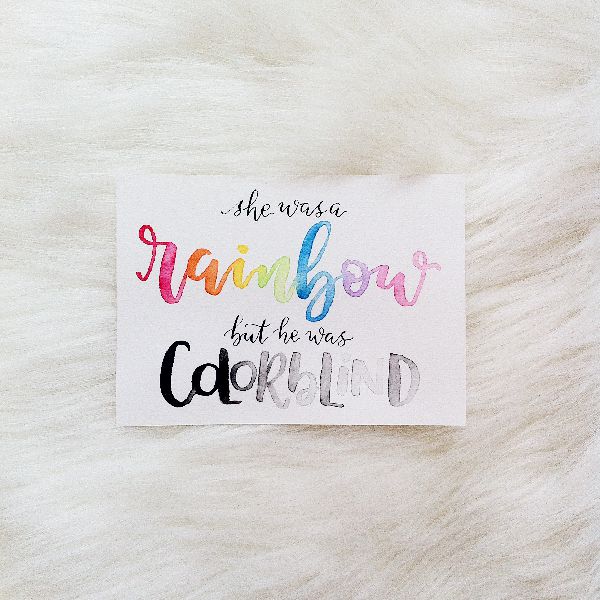 she was a
rainbow
but he was
COLORbLIND